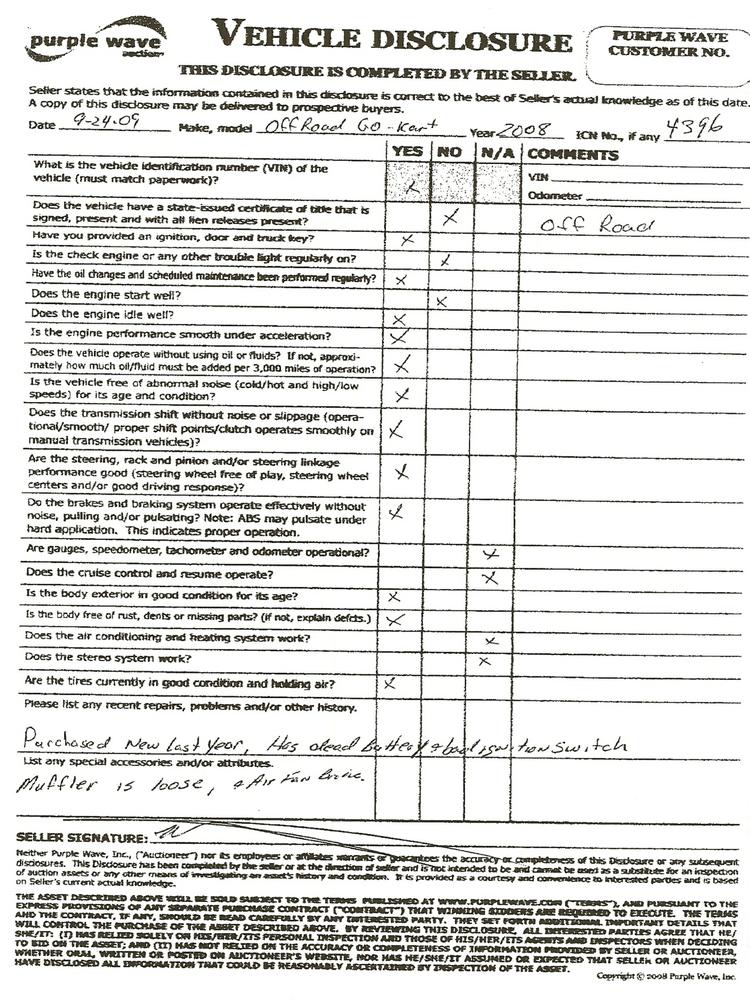 purple wave
auction
VEHICLE DISCLOSURE
PURPLE WAVE
CUSTOMER NO.
THIS DISCLOSURE IS COMPLETED BY THE SELLER.
Seller states that the information contained in this disclosure is correct to the best of Seller's actual knowledge as of this date.
A copy of this disclosure may be delivered to prospective buyers.
Date 9-24-09 Make, model Off Road Go-Kart Year 2008 ICN No., if any 4396
YES NO N/A COMMENTS
What is the vehicle identification number (VIN) of the
vehicle (must match paperwork)? X
VIN
Odometer
Does the vehicle have a state-issued certificate of title that is
signed, present and with all lien releases present? X Off Road
Have you provided an ignition, door and truck key? X
Is the check engine or any other trouble light regularly on? X
Have the oil changes and scheduled maintenance been performed regularly? X
Does the engine start well? X
Does the engine idle well? X
Is the engine performance smooth under acceleration? X
Does the vehicle operate without using oil or fluids? If not, approxi-
mately how much oil/fluid must be added per 3,000 miles of operation? X
Is the vehicle free of abnormal noise (cold/hot and high/low
speeds) for its age and condition? X
Does the transmission shift without noise or slippage (opera-
tional/smooth/ proper shift points/clutch operates smoothly on
manual transmission vehicles)? X
Are the steering, rack and pinion and/or steering linkage
performance good (steering wheel free of play, steering wheel
centers and/or good driving response)? X
Do the brakes and braking system operate effectively without
noise, pulling and/or pulsating? Note: ABS may pulsate under
hard application. This indicates proper operation. X
Are gauges, speedometer, tachometer and odometer operational? X
Does the cruise control and resume operate? X
Is the body exterior in good condition for its age? X
Is the body free of rust, dents or missing parts? (if not, explain defcts.) X
Does the air conditioning and heating system work? X
Does the stereo system work? X
Are the tires currently in good condition and holding air? X
Please list any recent repairs, problems and/or other history.
Purchased New last year, Has dead battery & bad ignition switch
List any special accessories and/or attributes.
Muffler is loose, & Air Fan
SELLER SIGNATURE:
Neither Purple Wave, Inc., ("Auctioneer") nor its employees or affiliates warrants or guarantees the accuracy or completeness of this Disclosure or any subsequent
disclosures. This Disclosure has been completed by the seller or at the direction of seller and is not intended to and cannot be used as a substitute for an inspection
of auction assets or any other means of investigating an asset's history and condition. It is provided as a courtesy and convenience to interested parties and is based
on Seller's current actual knowledge.
THE ASSET DESCRIBED ABOVE WILL BE SOLD SUBJECT TO THE TERMS PUBLISHED AT WWW.PURPLEWAVE.COM ("TERMS"), AND PURSUANT TO THE
EXPRESS PROVISIONS OF ANY SEPARATE PURCHASE CONTRACT ("CONTRACT") THAT WINNING BIDDERS ARE REQUIRED TO EXECUTE. THE TERMS
AND THE CONTRACT, IF ANY, SHOULD BE READ CAREFULLY BY ANY INTERESTED PARTY. THEY SET FORTH ADDITIONAL IMPORTANT DETAILS THAT
WILL CONTROL THE PURCHASE OF THE ASSET DESCRIBED ABOVE. BY REVIEWING THIS DISCLOSURE, ALL INTERESTED PARTIES AGREE THAT HE/
SHE/IT: (I) HAS RELIED SOLELY ON HIS/HER/ITS PERSONAL INSPECTION AND THOSE OF HIS/HER/ITS AGENTS AND INSPECTORS WHEN DECIDING
TO BID ON THE ASSET; AND (II) HAS NOT RELIED ON THE ACCURACY OR COMPLETENESS OF INFORMATION PROVIDED BY SELLER OR AUCTIONEER,
WHETHER ORAL, WRITTEN OR POSTED ON AUCTIONEER'S WEBSITE, NOR HAS HE/SHE/IT ASSUMED OR EXPECTED THAT SELLER OR AUCTIONEER
HAVE DISCLOSED ALL INFORMATION THAT COULD BE REASONABLY ASCERTAINED BY INSPECTION OF THE ASSET.
Copyright © 2008 Purple Wave, Inc.